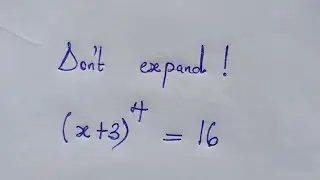 Don't expand !
(x+3)⁴ = 16